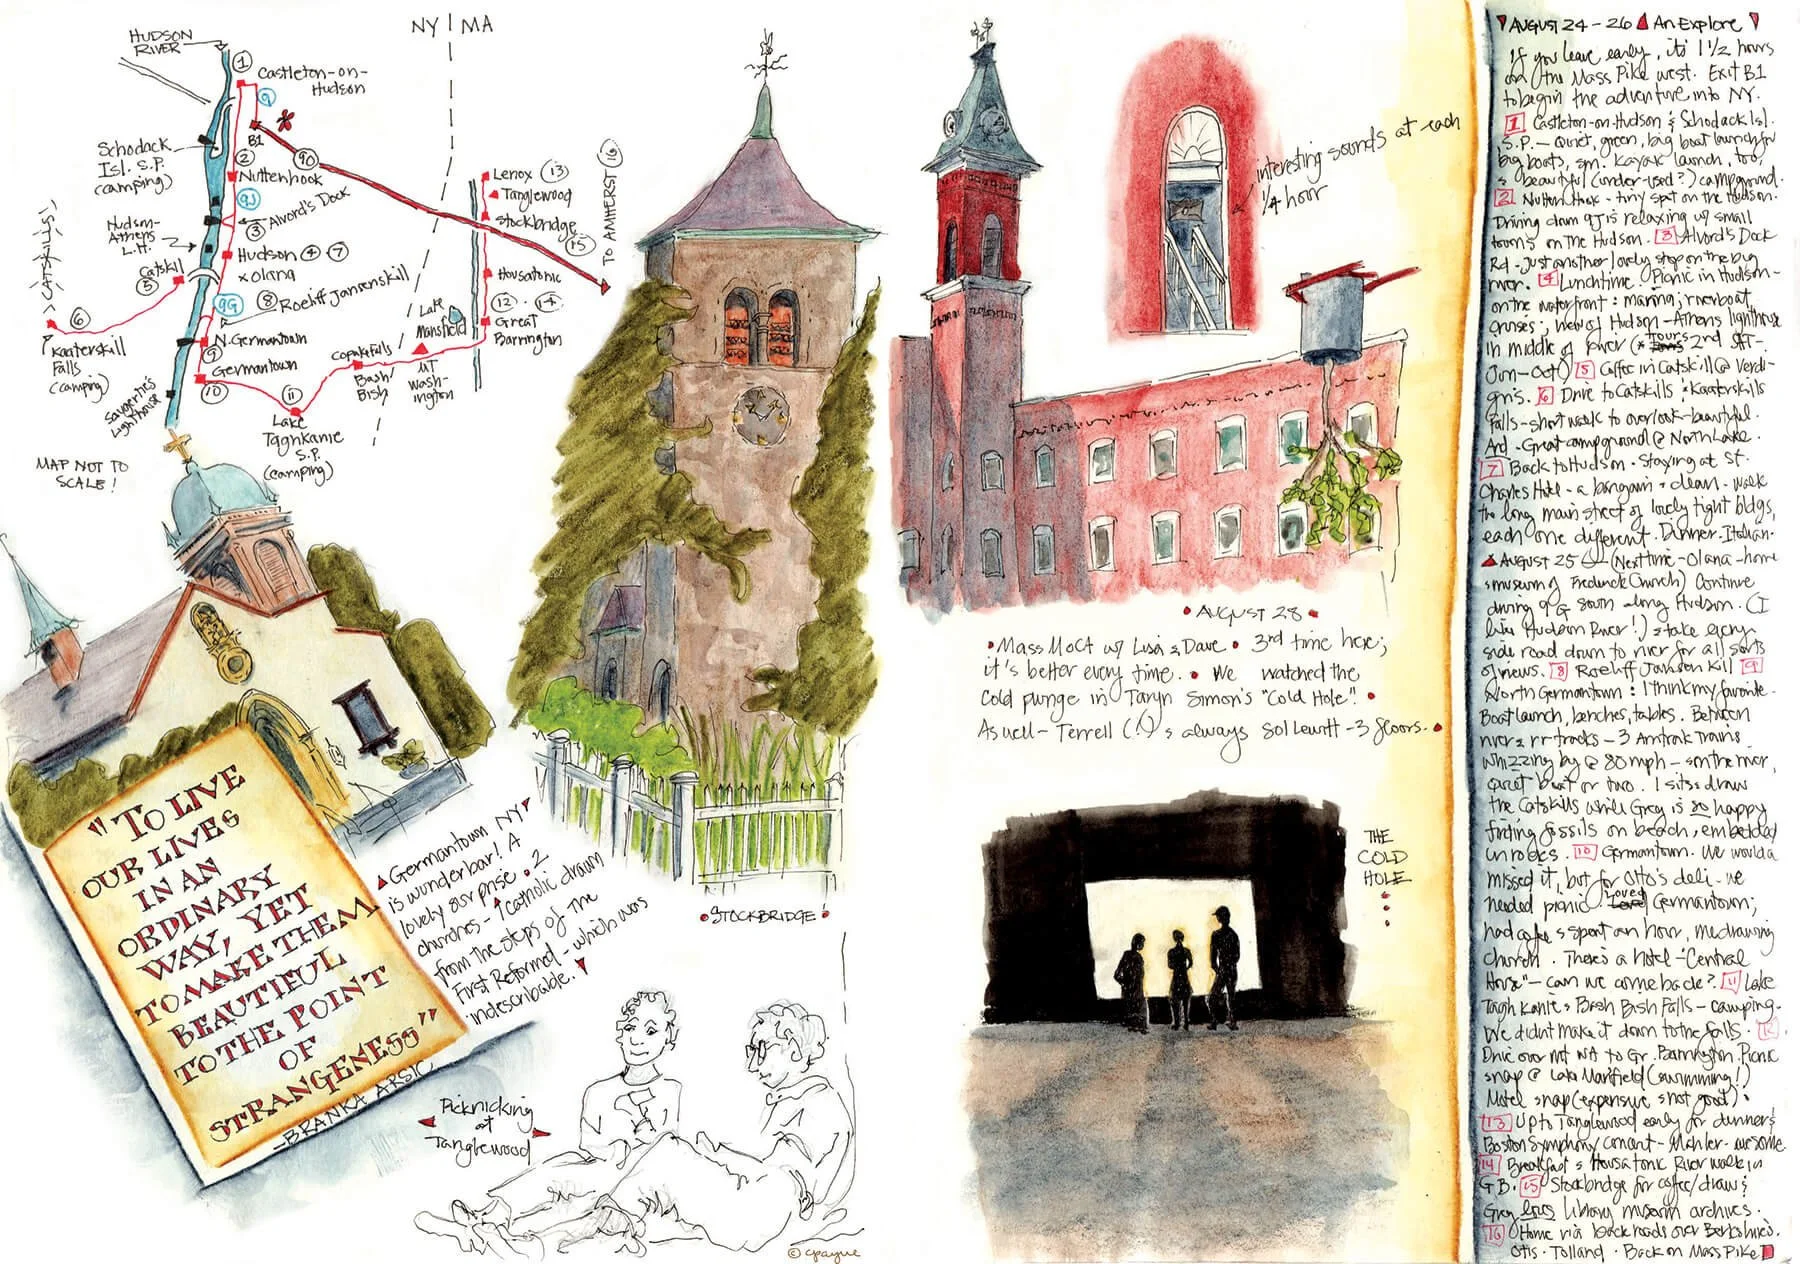 HUDSON
RIVER
NY | MA
1
Castleton-on-
Hudson
9
B1
90
Schodack
Isl. S.P.
(camping)
2
Nuttenhook
9J
3 Alvord's Dock
Hudson-
Athens
L.H.
Hudson 4 7
x Olana
Catskill
5
8 Roeliff Jansenskill
9G
> CATSKILLS!
6
Kaaterskill
Falls
(camping)
9
N. Germantown
Germantown
10
Saugerties
Lighthouse
11
Lake
Taghkanic
S.P.
(camping)
Copake Falls
Bash
Bish
MT
Wash-
ington
Lake
Mansfield
Lenox 13
Tanglewood
Stockbridge
15
Housatonic
12 · 14
Great
Barrington
TO AMHERST 16
MAP NOT TO
SCALE!
"TO LIVE
OUR LIVES
IN AN
ORDINARY
WAY, YET
TO MAKE THEM
BEAUTIFUL
TO THE POINT
OF
STRANGENESS"
- BRANKA ARSIC
Germantown NY
is wunderbar! A
lovely surprise. 2
churches - 1 Catholic drawn
from the steps of the
First Reformed - which was
indescribable.
STOCKBRIDGE!
Picknicking
at
Tanglewood
© cpayne
interesting sounds at each
1/4 hour
AUGUST 28
Mass MoCA w/ Lisa & Dave • 3rd time here;
it's better every time. • We watched the
cold punge in Taryn Simon's "Cold Hole". •
As well - Terrell (!) & always Sol Lewitt - 3 floors. •
THE
COLD
HOLE
AUGUST 24 - 26 An Explore
If you leave early, it's 1 1/2 hours
on the Mass Pike west. Exit B1
to begin the adventure into NY.
1 Castleton-on-Hudson & Schodack Isl.
S.P. - Quiet, green, big boat launch for
big boats, sm. kayak launch, too,
& beautiful (under-used?) campground.
2 Nutten Hook - tiny spot on the Hudson.
Driving down 9J is relaxing w/ small
towns on the Hudson. 3 Alvord's Dock
Rd - just another lovely stop on the big
river. 4 Lunchtime. Picnic in Hudson -
on the waterfront: marina; riverboat
cruises; view of Hudson-Athens lighthouse
in middle of river (* Tours 2nd SAT -
Jun - Oct) 5 Coffee in Catskill @ Verdi-
gris. 6 Drive to Catskills & Kaaterskills
Falls - short walk to overlook - beautiful.
And - Great campground @ North Lake.
7 Back to Hudson. Staying at St.
Charles Hotel - a bargain & clean - walk
the long main street of lovely tight bldgs,
each one different. Dinner - Italian.
AUGUST 25 (Next time - Olana - home
& museum of Frederick Church) Continue
driving 9G south along Hudson. (I
like Hudson River!) & take every
side road down to river for all sorts
of views. 8 Roeliff Jansen Kill 9
North Germantown: I think my favorite.
Boat launch, benches, tables. Between
river & rr tracks - 3 Amtrak Trains
whizzing by @ 80 mph - on the river,
quiet boat or two. I sit & draw
the Catskills while Greg is so happy
finding fossils on beach, embedded
in rocks. 10 Germantown. We would a
missed it, but for Otto's deli - we
needed picnic Loved Germantown;
had coffee & spent an hour, me drawing
church. There's a hotel - "Central
House" - can we come back? 11 Lake
Taghkanic & Bash Bish Falls - camping -
We didn't make it down to the falls. 12
Drive over Mt WA to Gr. Barrington. Picnic
snap @ Lake Mansfield (swimming!)
Motel snap (expensive & not great).
13 Up to Tanglewood early for dinner &
Boston Symphony concert - Mahler - awesome.
14 Breakfast & Housatonic River walk in
G B. 15 Stockbridge for coffee/draw &
Greg loves Library museum archives.
16 Home via back roads over Berkshires.
Otis · Tolland · Back on Mass Pike